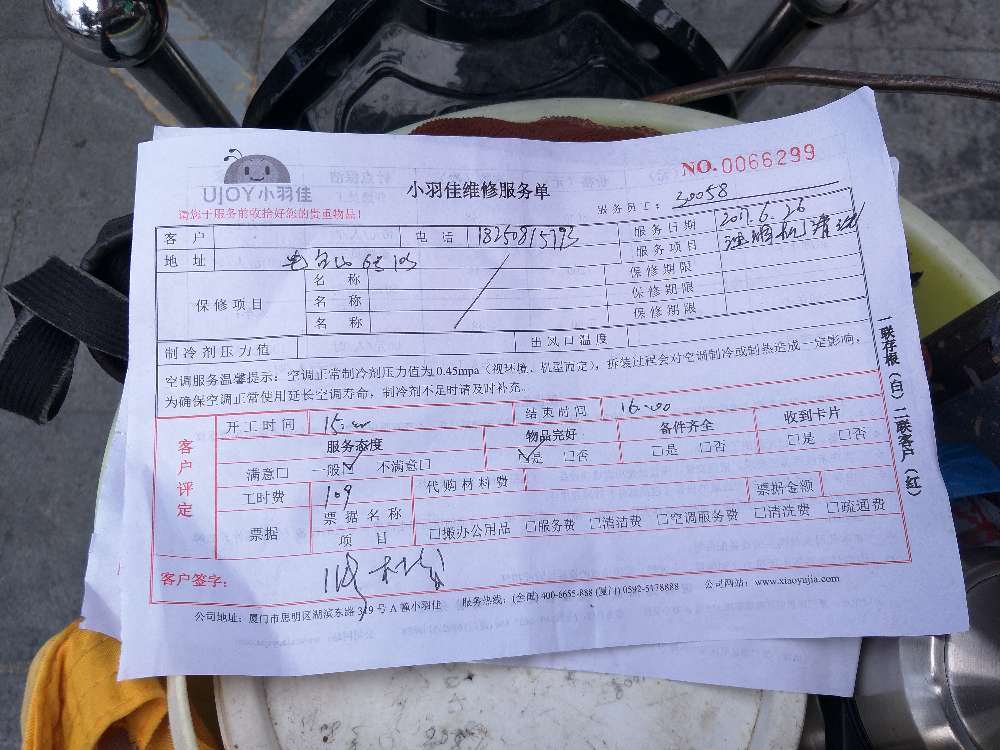 UJOY小羽佳
请您于服务前收拾好您的贵重物品!
小羽佳维修服务单
NO.0066299
服务员工: 30058
客 户 电 话 18250815793 服务日期 2017.6.26
地 址 服务项目 油烟机清洗
保修项目
名 称 保修期限
名 称 保修期限
名 称 保修期限
制冷剂压力值 出风口温度
空调服务温馨提示: 空调正常制冷剂压力值为0.45mpa(视环境、机型而定), 拆装过程会对空调制冷或制热造成一定影响,
为确保空调正常使用延长空调寿命, 制冷剂不足时请及时补充.
客户评定
开工时间 15:00 结束时间 16:00
服务态度 物品完好 备件齐全 收到卡片
满意□ 一般□ 不满意□ □是 □否 □是 □否 □是 □否
工时费 109 代购材料费 票据金额
票据 票据名称
项 目 □搬办公用品 □服务费 □清洁费 □空调服务费 □清洗费 □疏通费
客户签字:
公司地址: 厦门市思明区湖滨东路319号A幢小羽佳 服务热线: (全国) 400-6655-888 (厦门) 0592-5178888 公司网站: www.xiaoyujia.com
一联存根(白) 二联客户(红)